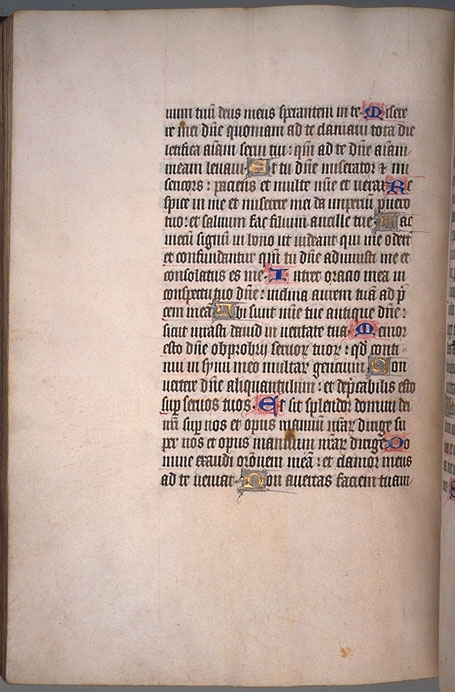 uum tuū deus meus sperantem in te. Misere
re mei dn̄e quoniam ad te clamaui tota die
letifica aīam serui tui: qm̄ ad te dn̄e aīam
meam leuaui. Et tu dn̄e miserator et mi
sericors: paciens et multe mīe et uerax. Re
spice in me et miserere mei da imperiū puero
tuo: et saluum fac filium ancille tue. Fac
mecū signū in bono ut uideant qui me oderūt
et confundantur qm̄ tu dn̄e adiuuisti me et
consolatus es me. Intret oratio mea in
conspectu tuo dn̄e: inclina aurem tuā ad p̄
cem meā. Vbi sunt mīe tue antique dn̄e:
sicut iurasti dauid in ueritate tua. Memor
esto dn̄e obprobrij seruoꝝ tuoꝝ: qd̄ conti
nui in sinu meo multaꝝ gencium. Con
uertere dn̄e aliquantulum: et dep̄cabilis esto
sup seruos tuos. Et sit splendor domini dei
nr̄i sup nos et opus manuū nr̄aꝝ dirige su
per nos et opus manuum nr̄aꝝ dirige. Do
mine exaudi or̄onem meā: et clamor meus
ad te ueniat. Non auertas faciem tuam